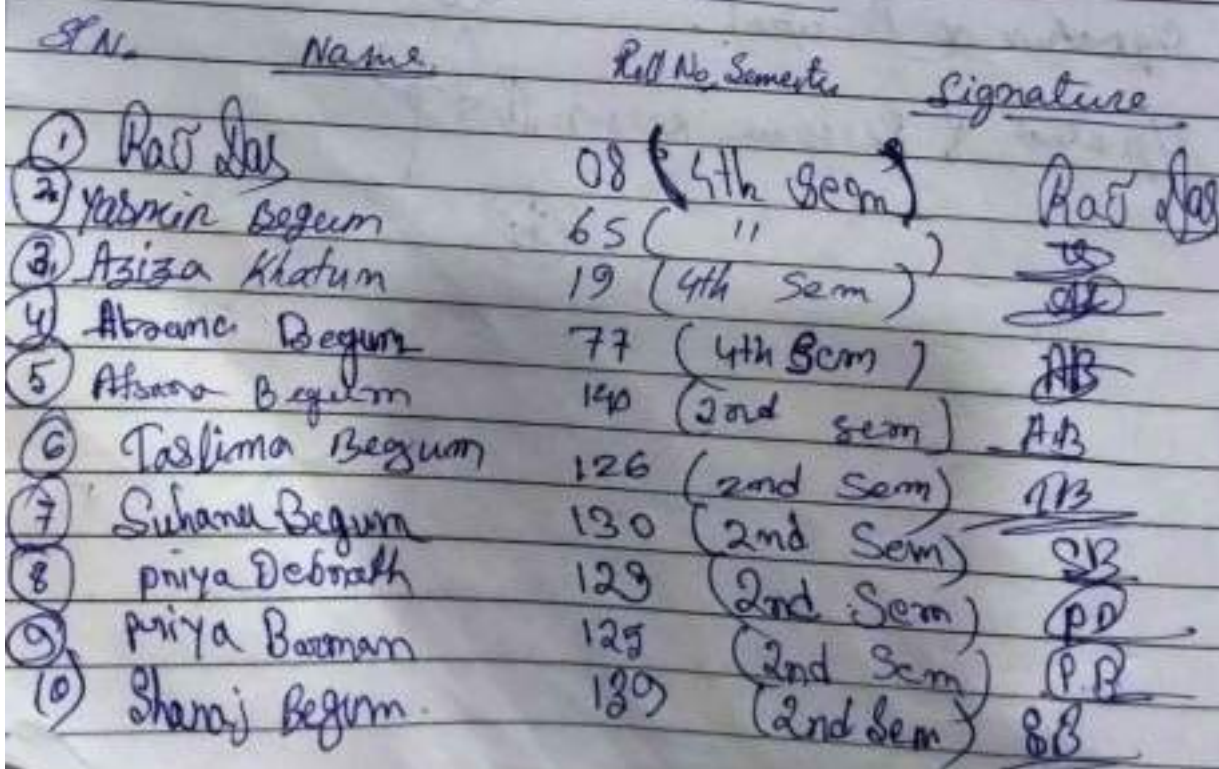 Sl N. Name Roll No. Semester Signature
1 Das 08 (4th Sem) Das
2. Yasmin Begum 65 ( " )
3. Aziza Khatum 19 (4th Sem)
4 Begum 77 (4th Sem) AB
5 Afsana Begum 140 (2nd sem) A.B
6 Taslima Begum 126 (2nd Sem) TB
7 Suhana Begum 130 (2nd Sem) SB
8 priya Debnath (2nd Sem) PD
9 priya Barman (2nd Sem) P.B
10 Begum. 139 (2nd Sem) SB